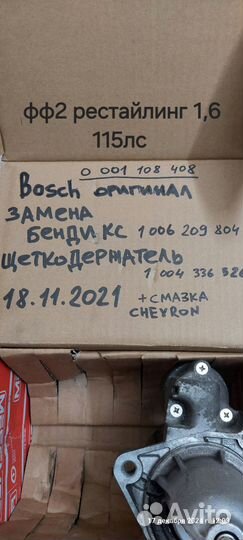 фф2 рестайлинг 1,6
115лс
0 001 108 408
Bosch оригинал
ЗАМЕНА
БЕНДИКС 1 006 209 804
ЩЕТКОДЕРЖАТЕЛЬ
1 004 336 526
18.11.2021 + СМАЗКА
CHEVRON
17 декабря 2024 г. 12:03
Avito